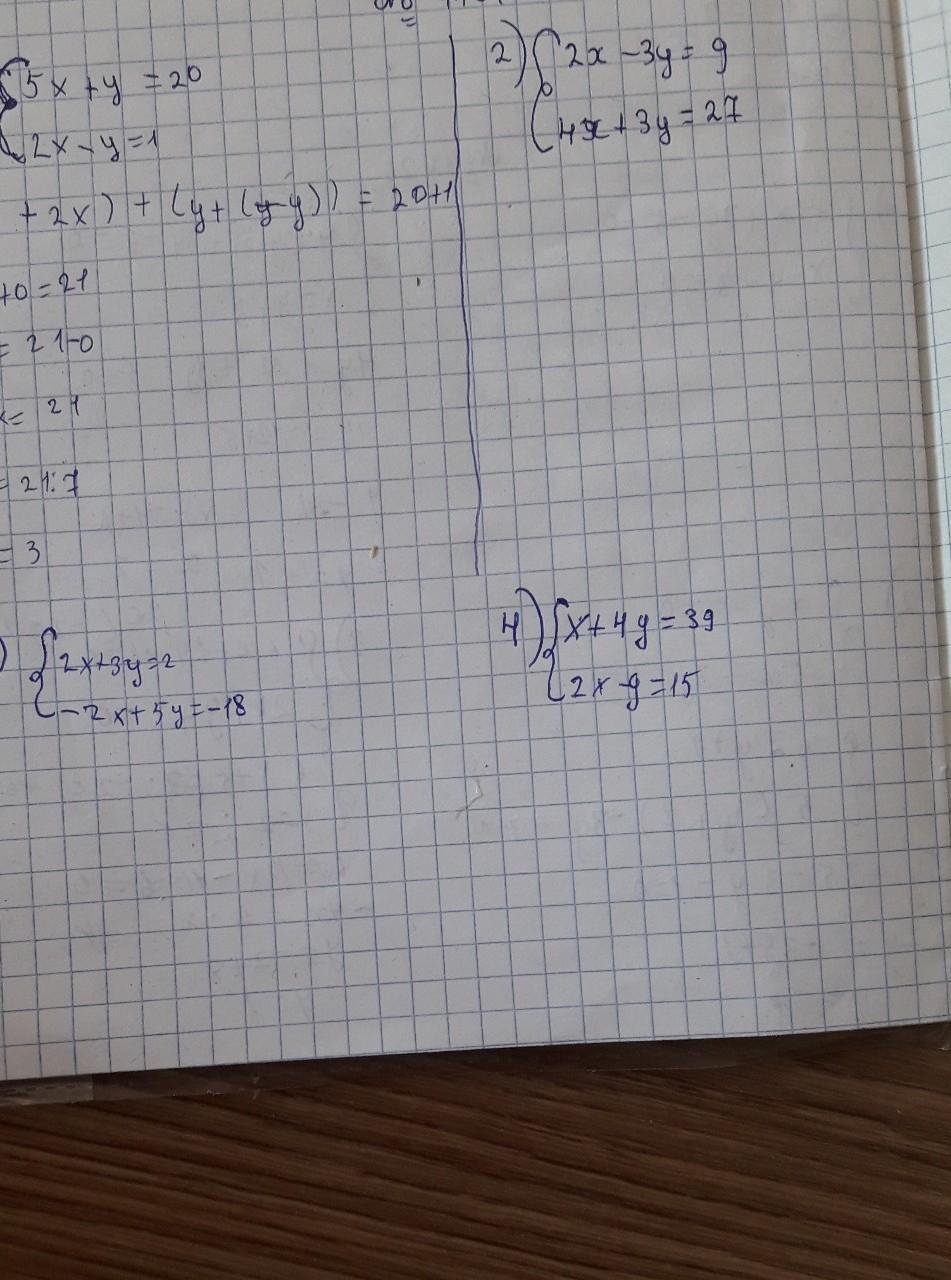 5x + y = 20
2x - y = 1
+ 2x) + (y + (y-y)) = 20+1
+0 = 21
= 21-0
x = 21
= 21:7
= 3
2) 2x - 3y = 9
4x + 3y = 27
) 2x+3y=2
-2x+5y=-18
4) x+4y=39
2x-y=15